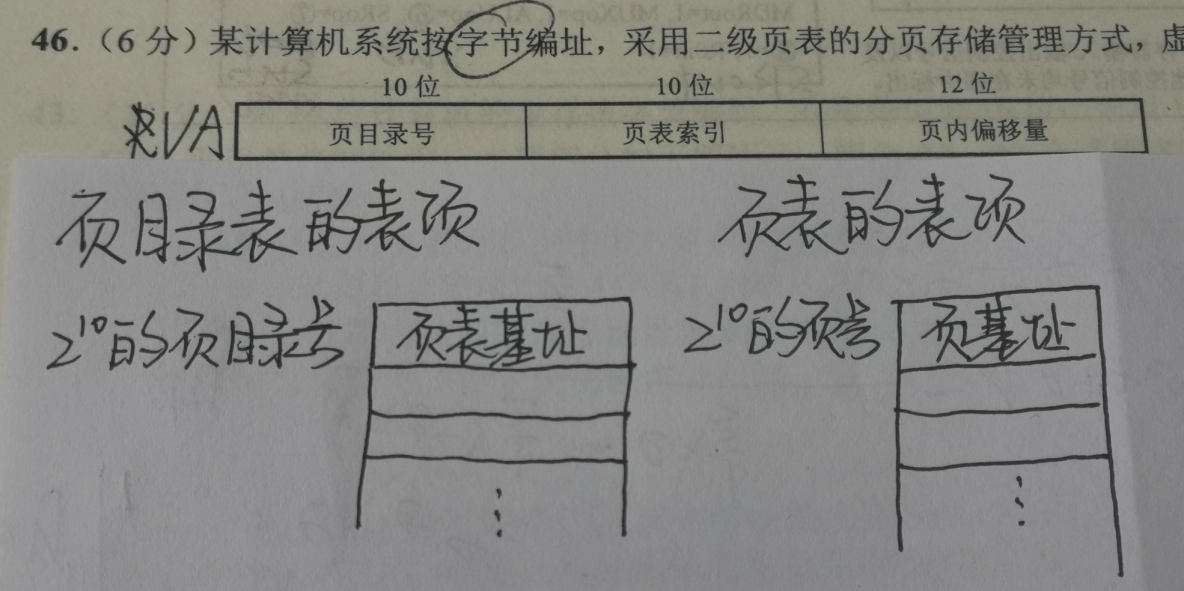 46.（6 分）某计算机系统按字节编址，采用二级页表的分页存储管理方式，虚
10 位 10 位 12 位
VA 页目录号 页表索引 页内偏移量
页目录表的表项 页表的表项
2¹⁰的页目录号 页表基址 2¹⁰的页号 页基址
⋮ ⋮